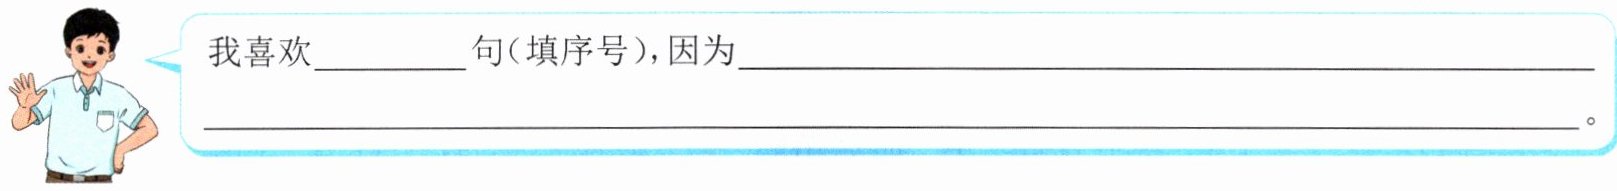 我喜欢________句(填序号),因为________________________________
________________________________________________________。